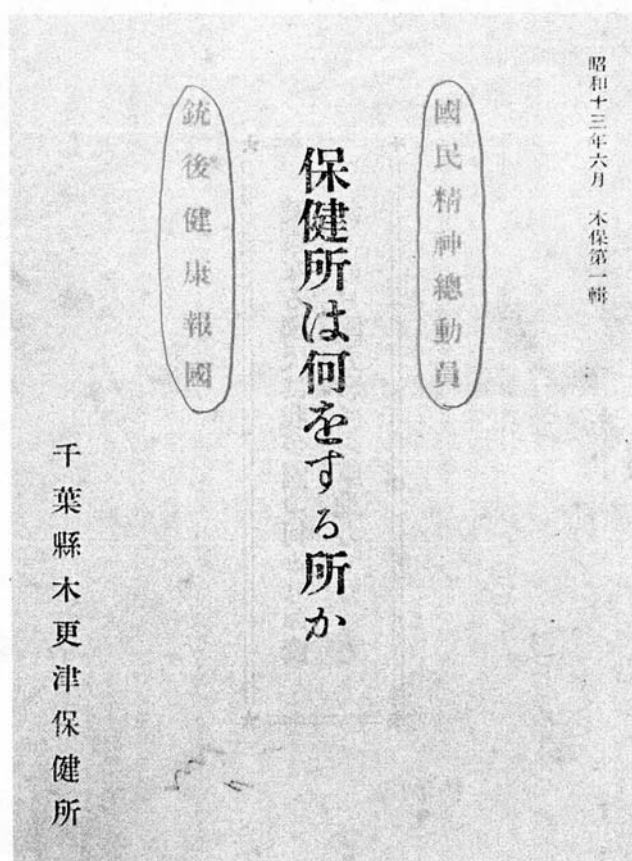 昭和十三年六月　木保第一輯
國民精神總動員
保健所は何をする所か
銃後健康報國
千葉縣木更津保健所